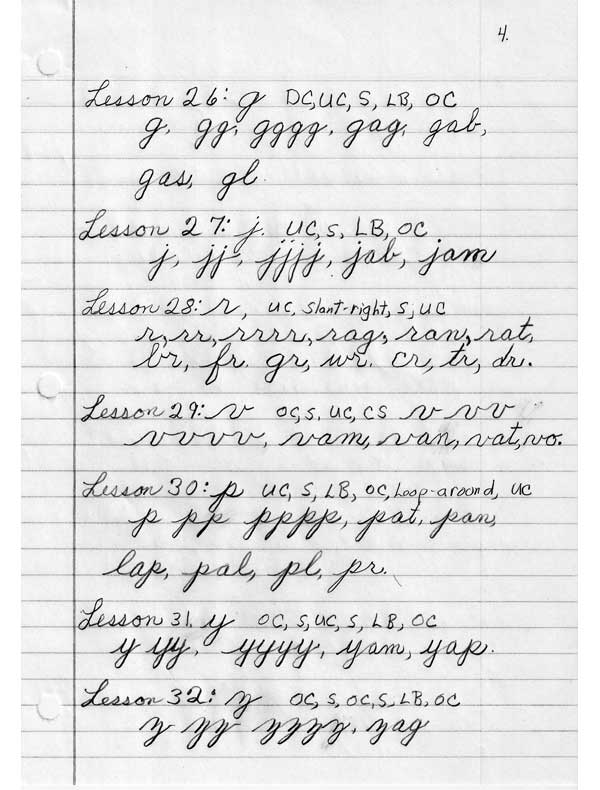 4.
Lesson 26: g DC, UC, S, LB, OC
g, gg, gggg, gag, gab,
gas, gl
Lesson 27: j. UC, S, LB, OC
j, jj, jjjj, jab, jam
Lesson 28: r, UC, Slant-right, S, UC
r, rr, rrrr, rag, ran, rat,
br, fr. gr, wr. cr, tr, dr.
Lesson 29: v OC, S, UC, CS v vv
vvvv, vam, van, vat, vo.
Lesson 30: p UC, S, LB, OC, Loop-around, UC
p pp pppp, pat, pan,
lap, pal, pl, pr.
Lesson 31. y OC, S, UC, S, LB, OC
y yy, yyyy, yam, yap.
Lesson 32: z OC, S, OC, S, LB, OC
z zz zzzz, zag